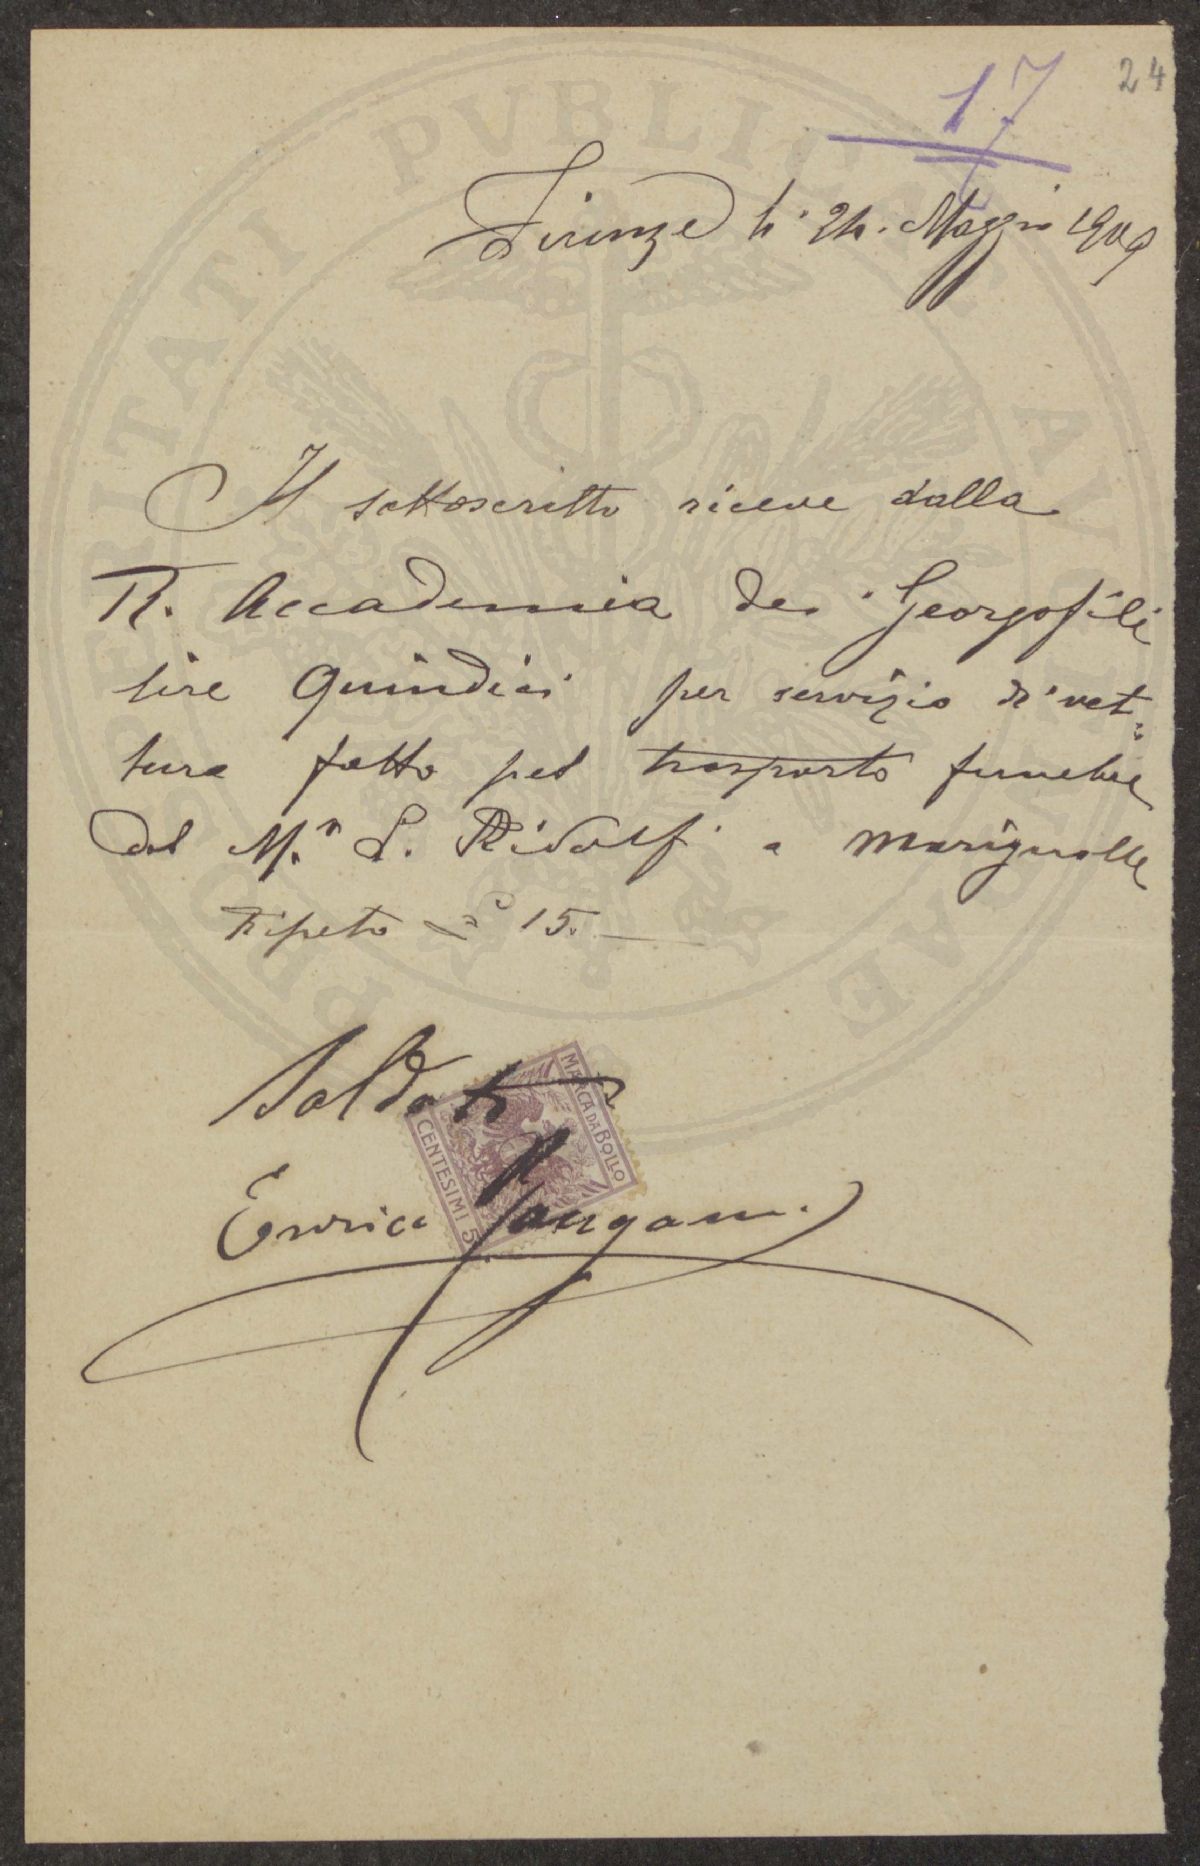 24
17
Firenze li 24. Maggio 1909
Il sottoscritto riceve dalla
R. Accademia dei Georgofili
lire Quindici per servizio di vet-
tura fatto pel trasporto funebre
del M.se L. Ridolfi a Marignolle
Ripeto £ 15.
Saldato
MARCA DA BOLLO
CENTESIMI 5
Enrico
PROSPERITATI PVBLICAE AVGENDAE